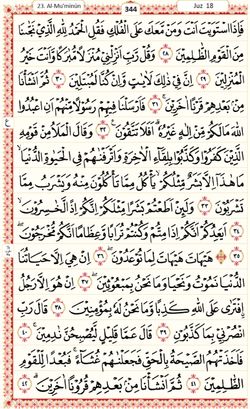 23. Al-Mu'minūn 344 Juz 18
فَإِذَا ٱسْتَوَيْتَ أَنتَ وَمَن مَّعَكَ عَلَى ٱلْفُلْكِ فَقُلِ ٱلْحَمْدُ لِلَّهِ ٱلَّذِى نَجَّىٰنَا
مِنَ ٱلْقَوْمِ ٱلظَّـٰلِمِينَ ٢٨ وَقُل رَّبِّ أَنزِلْنِى مُنزَلًا مُّبَارَكًا وَأَنتَ خَيْرُ
ٱلْمُنزِلِينَ ٢٩ إِنَّ فِى ذَٰلِكَ لَـَٔايَـٰتٍ وَإِن كُنَّا لَمُبْتَلِينَ ٣٠ ثُمَّ أَنشَأْنَا
مِنۢ بَعْدِهِمْ قَرْنًا ءَاخَرِينَ ٣١ فَأَرْسَلْنَا فِيهِمْ رَسُولًا مِّنْهُمْ أَنِ ٱعْبُدُوا۟
ٱللَّهَ مَا لَكُم مِّنْ إِلَـٰهٍ غَيْرُهُۥٓ أَفَلَا تَتَّقُونَ ٣٢ وَقَالَ ٱلْمَلَأُ مِن قَوْمِهِ
ٱلَّذِينَ كَفَرُوا۟ وَكَذَّبُوا۟ بِلِقَآءِ ٱلْـَٔاخِرَةِ وَأَتْرَفْنَـٰهُمْ فِى ٱلْحَيَوٰةِ ٱلدُّنْيَا
مَا هَـٰذَآ إِلَّا بَشَرٌ مِّثْلُكُمْ يَأْكُلُ مِمَّا تَأْكُلُونَ مِنْهُ وَيَشْرَبُ مِمَّا
تَشْرَبُونَ ٣٣ وَلَئِنْ أَطَعْتُم بَشَرًا مِّثْلَكُمْ إِنَّكُمْ إِذًا لَّخَـٰسِرُونَ
٣٤ أَيَعِدُكُمْ أَنَّكُمْ إِذَا مِتُّمْ وَكُنتُمْ تُرَابًا وَعِظَـٰمًا أَنَّكُم مُّخْرَجُونَ
٣٥ هَيْهَاتَ هَيْهَاتَ لِمَا تُوعَدُونَ ٣٦ إِنْ هِىَ إِلَّا حَيَاتُنَا
ٱلدُّنْيَا نَمُوتُ وَنَحْيَا وَمَا نَحْنُ بِمَبْعُوثِينَ ٣٧ إِنْ هُوَ إِلَّا رَجُلٌ
ٱفْتَرَىٰ عَلَى ٱللَّهِ كَذِبًا وَمَا نَحْنُ لَهُۥ بِمُؤْمِنِينَ ٣٨ قَالَ رَبِّ
ٱنصُرْنِى بِمَا كَذَّبُونِ ٣٩ قَالَ عَمَّا قَلِيلٍ لَّيُصْبِحُنَّ نَـٰدِمِينَ ٤٠
فَأَخَذَتْهُمُ ٱلصَّيْحَةُ بِٱلْحَقِّ فَجَعَلْنَـٰهُمْ غُثَآءً فَبُعْدًا لِّلْقَوْمِ
ٱلظَّـٰلِمِينَ ٤١ ثُمَّ أَنشَأْنَا مِنۢ بَعْدِهِمْ قُرُونًا ءَاخَرِينَ ٤٢